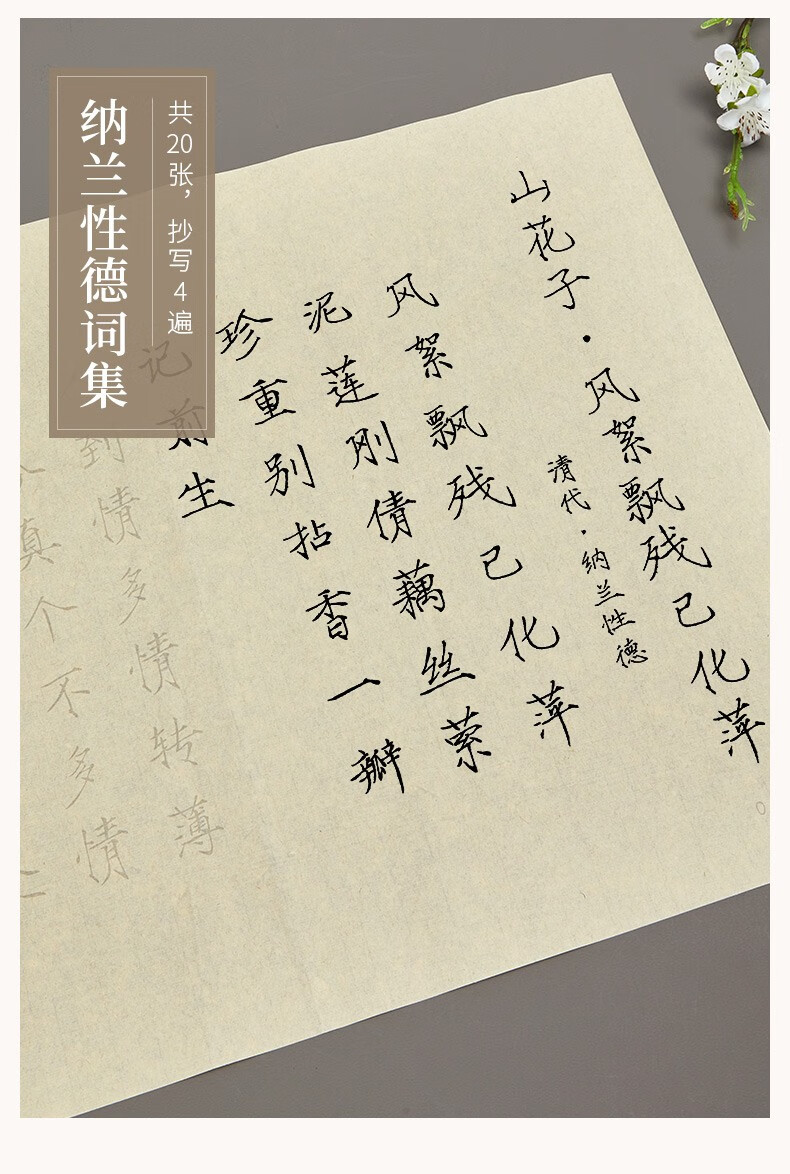 纳兰性德词集
共20张，抄写4遍
山花子·风絮飘残已化萍
清代·纳兰性德
风絮飘残已化萍
泥莲刚倩藕丝萦
珍重别拈香一瓣
记前生
到情多情转薄
真个不多情